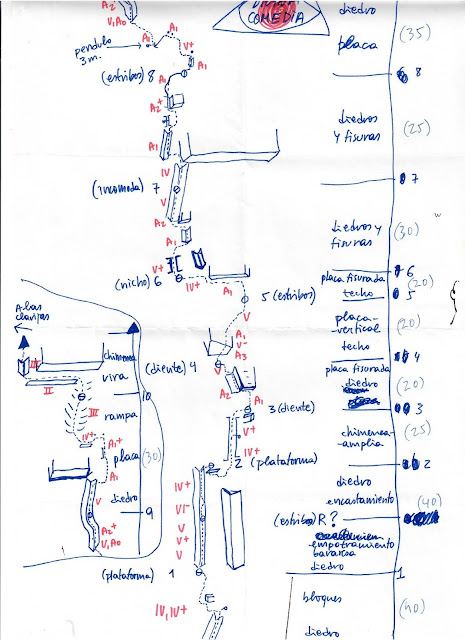 COMEDIA
A2
V, A0
A0
A1
V+
A1
pendulo
3 m.
(estribos) 8
A1
A2+
A1
IV
(incomoda) 7
V
A2
A1
V+
(nicho) 6
IV+
A1
5 (estribos)
V
A1
V
A3
(diente) 4
V
A2
A1
3 (diente)
V+
IV+
2 (plataforma)
IV+
VI-
V
V+
V
(estribo) R?
(plataforma) 1
IV, IV+
diedro
placa
(35)
8
diedros
y fisuras
(25)
7
diedros y
fisuras
(30)
6
placa fisurada
(20)
techo
5
placa
vertical
(20)
techo
4
placa fisurada
diedro
(20)
3
chimenea
amplia
(25)
2
diedro
encastamiento
(40)
empotramiento
bavaresa
diedro
1
bloques
(40)
diedro
A las
clavijas
III
II
chimenea
vira
10
III
rampa
IV+
A1+
placa (30)
A1
V
diedro
9
A2+
V, A0